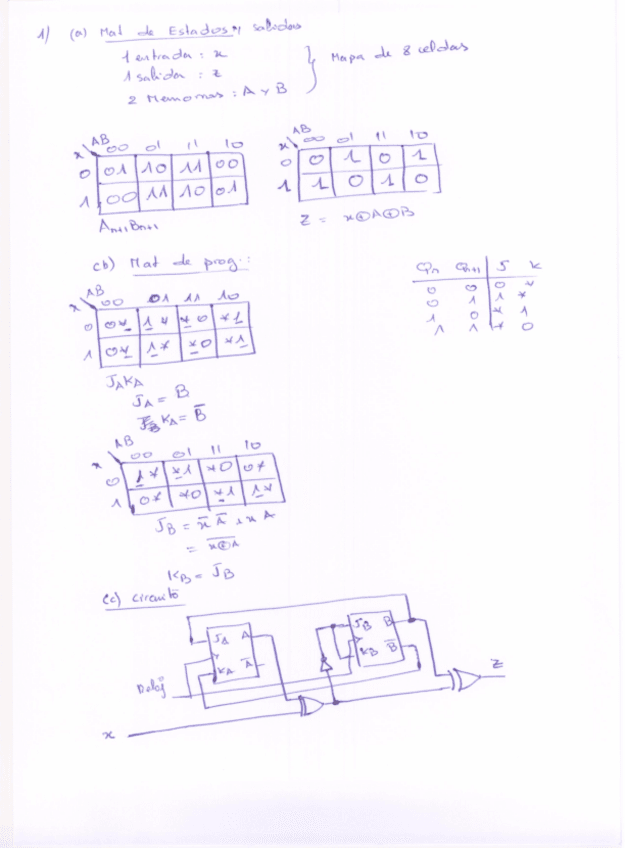 1) (a) Mat de Estados y salidas
1 entrada : x
1 salida : z
2 Memorias : A y B
Mapa de 8 celdas
AB
x 00 01 11 10
0 01 10 11 00
1 00 11 10 01
An+1Bn+1
AB
x 00 01 11 10
0 0 1 0 1
1 1 0 1 0
Z = x⊕A⊕B
(b) Mat de prog.:
Qn Qn+1 J K
0 0 0 *
0 1 1 *
1 0 * 1
1 1 * 0
AB
x 00 01 11 10
0 0* 1* *0 *1
1 0* 1* *0 *1
JAKA
JA = B
KA = B̅
AB
x 00 01 11 10
0 1* *1 *0 0*
1 0* *0 *1 1*
JB = x̅ A̅ + x A
= x⊕A̅
KB = JB
(c) circuito
JA A
KA A̅
JB B
KB B̅
Reloj
z
x